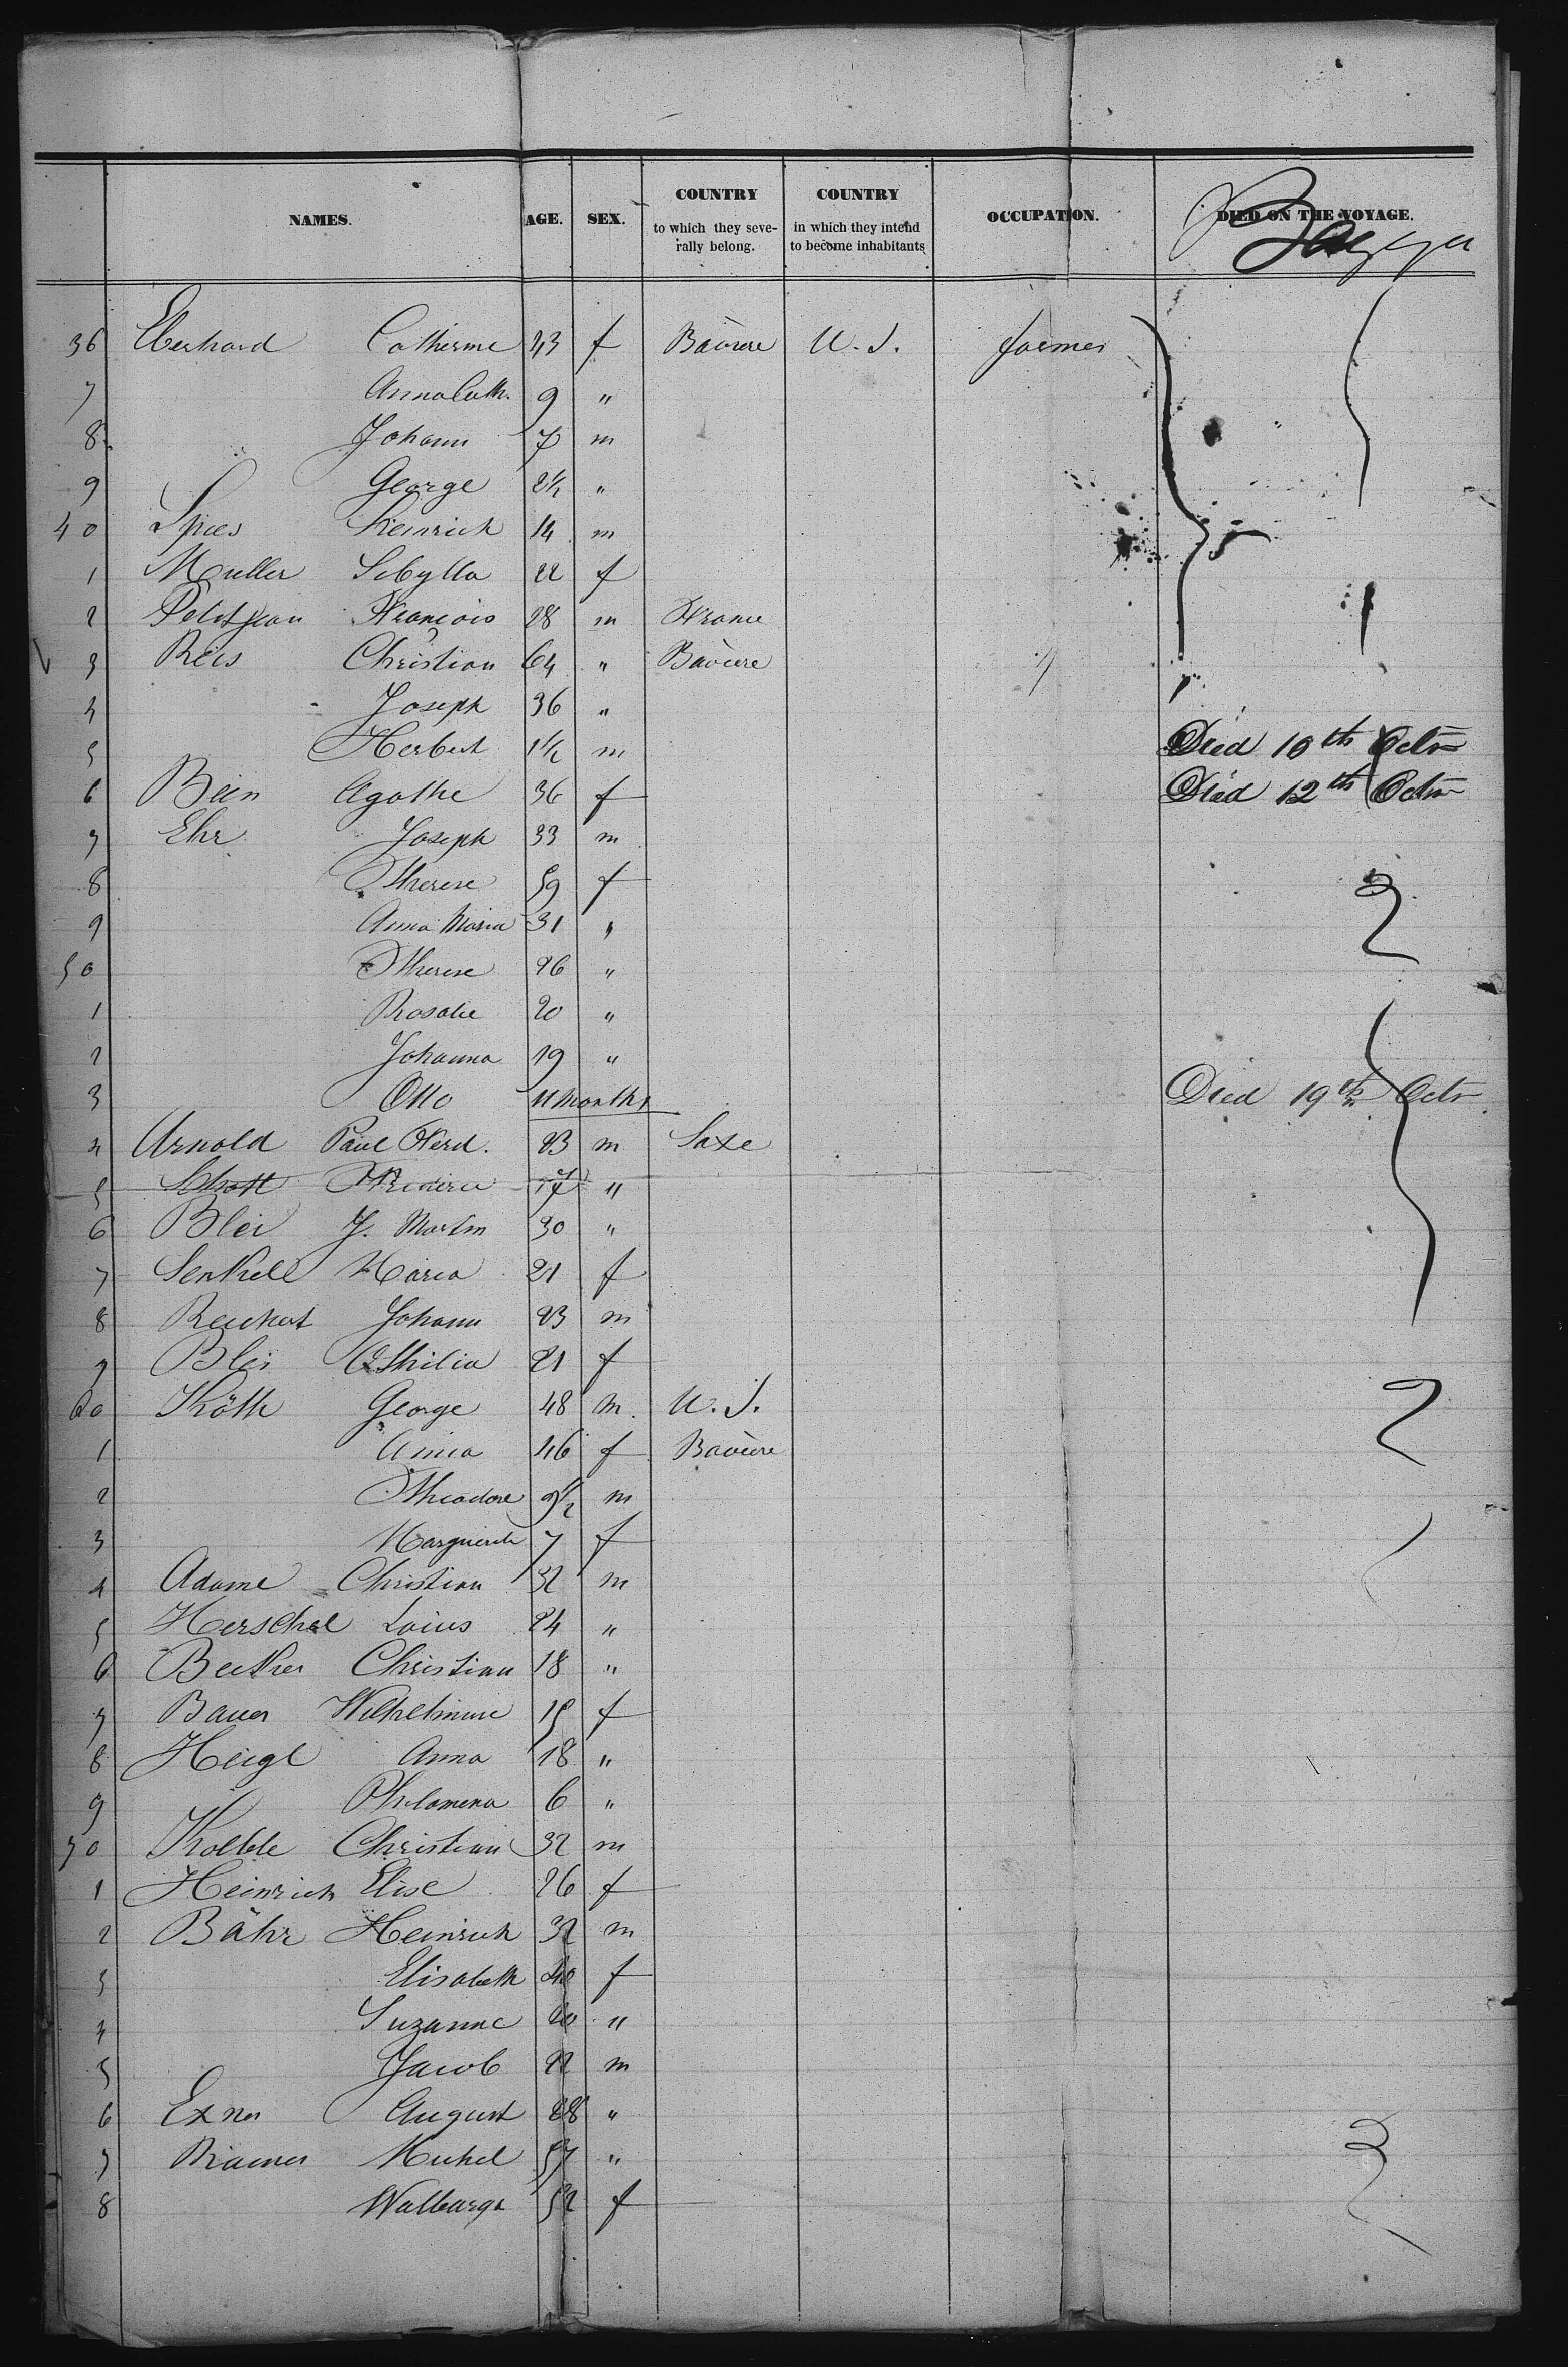 NAMES. AGE. SEX. COUNTRY to which they seve- rally belong. COUNTRY in which they intend to become inhabitants OCCUPATION. DIED ON THE VOYAGE.
36 Eberhard Catherine 43 f Bavière U. S. farmer
7 Anna Cath. 9 "
8 Johann 7 m
9 George 2½ "
40 Spies Heinrich 14 m
1 Muller Sibylla 22 f
2 Petitjean François 28 m France 1
3 Reis Christian 64 " Bavière
4 Joseph 36 "
5 Herbert 1½ m Died 10th Octr
6 Bein Agathe 36 f Died 12th Octr
7 Ehr Joseph 33 m
8 Therese 59 f 2
9 Anna Maria 31 "
50 Therese 26 "
1 Rosalie 20 "
2 Johanna 19 "
3 Otto 11 months Died 19th Octr
4 Arnold Paul Ferd. 23 m Saxe
5 Schott 17 "
6 Blei J. Martin 30 "
7 Senkell Maria 21 f
8 Johann 23 m
9 Blei Othilia 21 f
60 Köth George 48 m. U. S. 2
1 Anna 46 f Bavière
2 Theodore 9½ m
3 Marguerite 7 f
4 Adame Christian 32 m
5 Herschel Loius 24 "
6 Becker Christian 18 "
7 Bauer Wilhelmine 15 f
8 Heigl Anna 18 "
9 Philomena 6 "
70 Christian 32 m
1 Heinrich Elise 26 f
2 Bähr Heinrich 32 m
3 Elisabeth 40 f
4 Suzanne 20 "
5 Jacob 22 m
6 Exner August 28 "
7 Michel 57 "
8 Walburga 52 f